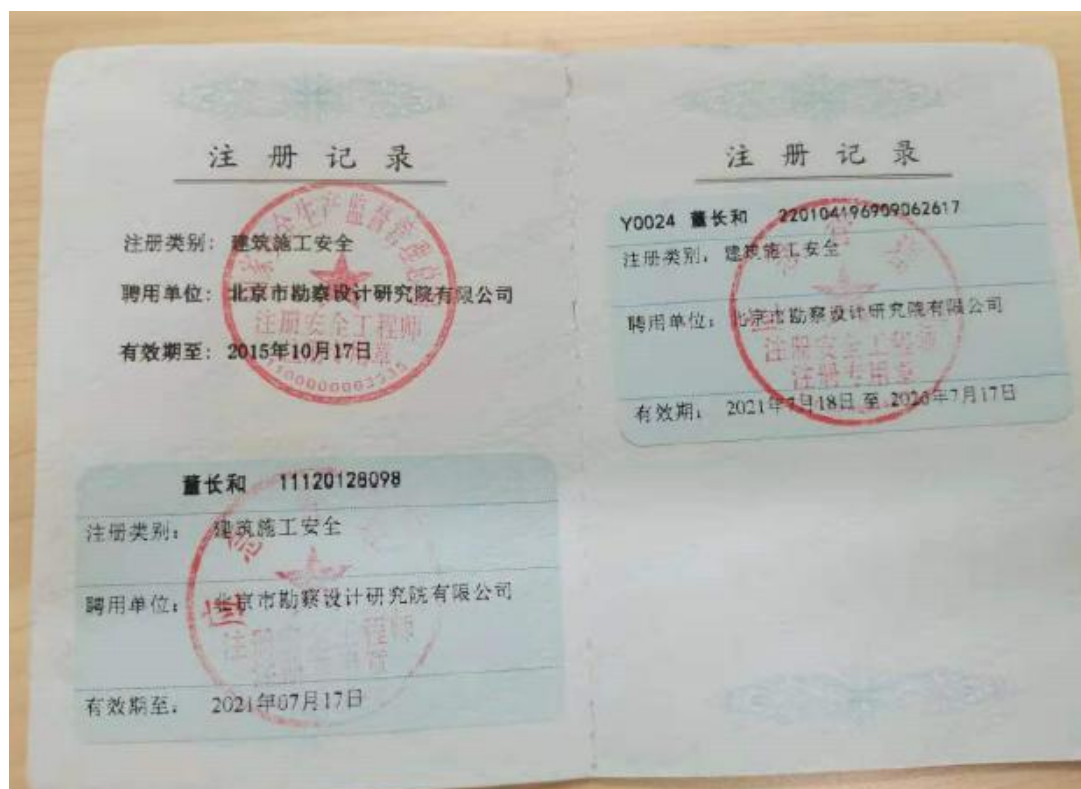 注册记录
注册类别：建筑施工安全
聘用单位：北京市勘察设计研究院有限公司
有效期至：2015年10月17日
注册安全工程师
1100000063535
董长和 11120128098
注册类别：建筑施工安全
聘用单位：北京市勘察设计研究院有限公司
有效期至：2021年07月17日
注册记录
Y0024 董长和 220104196909062617
注册类别：建筑施工安全
聘用单位：北京市勘察设计研究院有限公司
有效期：2021年7月18日 至 2026年7月17日
注册安全工程师
注册专用章